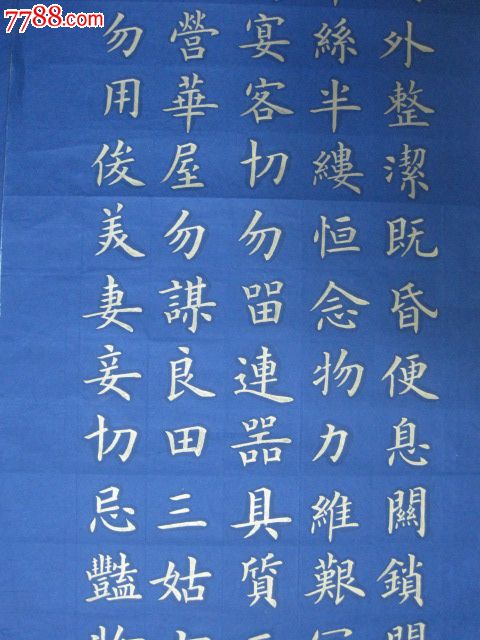 7788.com
外整潔既昏便息關鎖
絲半縷恒念物力維艱
宴客切勿留連噐具質
營華屋勿謀良田三姑
勿用俊美妻妾切忌豔